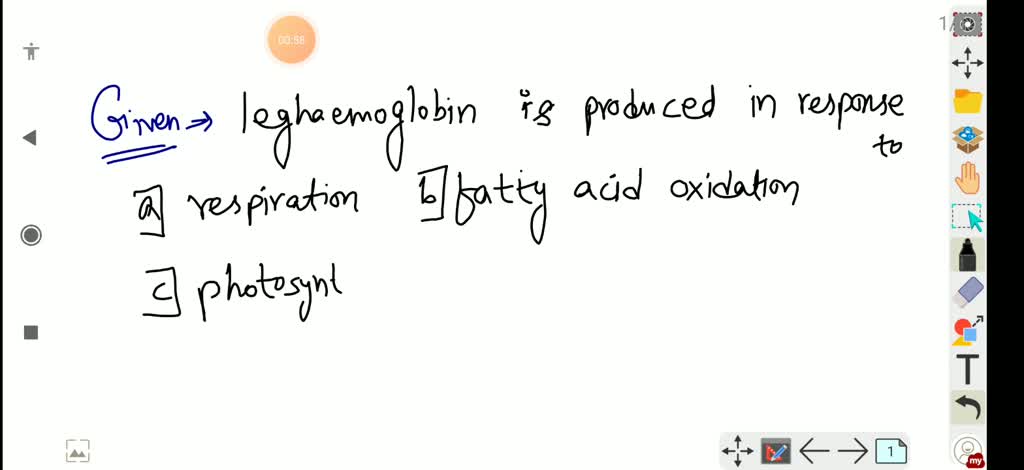 00:58
1/
Given⇒ leghaemoglobin is produced in response
to
a] respiration b] fatty acid oxidation
c] photosynt
T
1
my